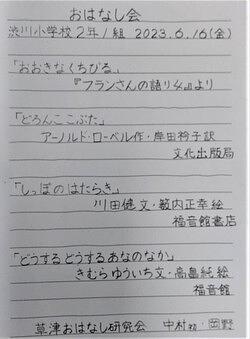 おはなし会
渋川小学校2年1組 2023.6.16(金)
「おおきなくちびる」
『フランさんの語り4』より
「どろんここぶた」
アーノルド・ローベル作・岸田衿子訳
文化出版局
「しっぽのはたらき」
川田健 文・薮内正幸 絵
福音館書店
「どうするどうするあなのなか」
きむらゆういち文・高畠純 絵
福音館
草津おはなし研究会 中村 ・岡野